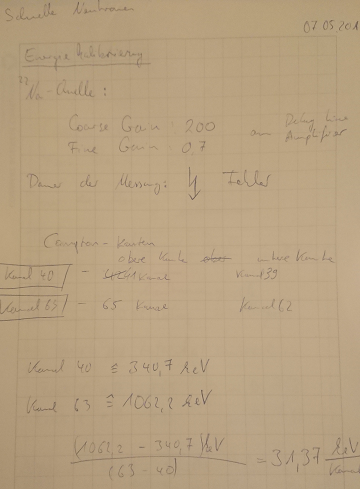 Schnelle Neutronen
07.05.201
Energie Kalibrierung
²²Na-Quelle:
Coarse Gain: 200 am Delay Line
Fine Gain: 0,7 Amplifier
Dauer der Messung: Fehler
Compton-Kanten
obere Kante untere Kante
Kanal 40 - 41 Kanal Kanal 39
Kanal 63 - 65 Kanal 62
Kanal 40 ≙ 340,7 keV
Kanal 63 ≙ 1062,2 keV
(1062,2 - 340,7) keV
(63 - 40) = 31,37 keV
Kanal